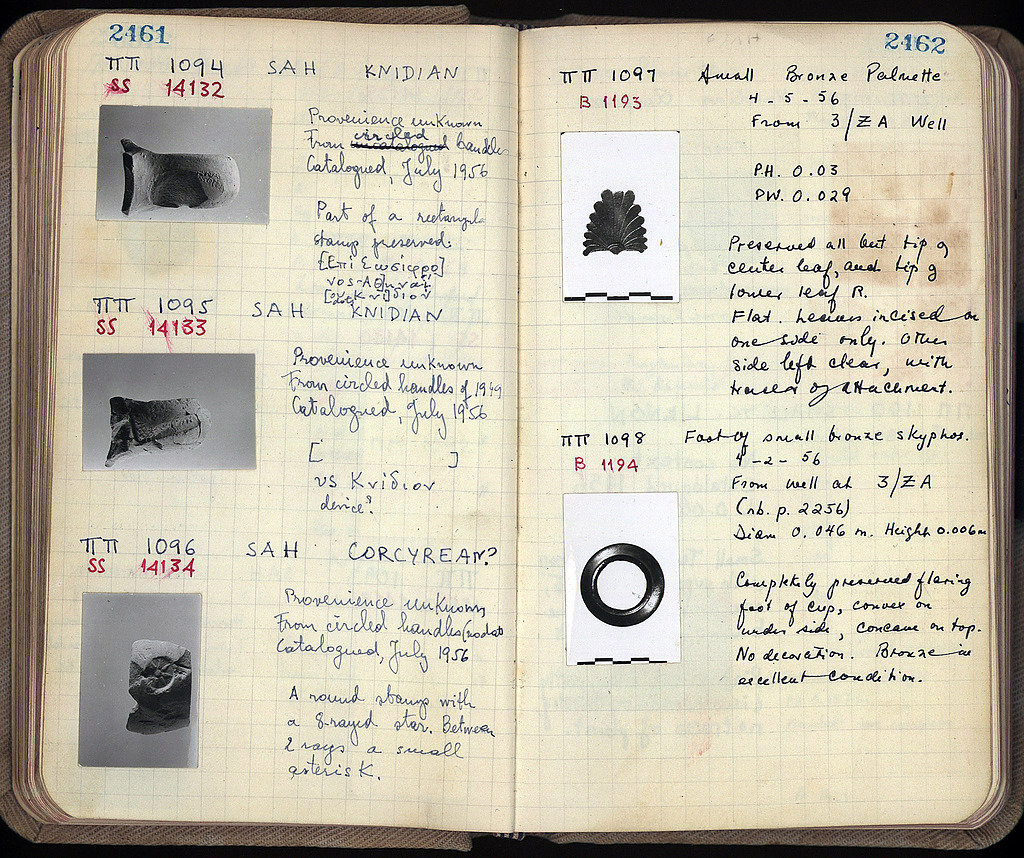 2461
ΠΠ 1094 SAH KNIDIAN
SS 14132
Provenience unknown
From circled handles
Catalogued, July 1956
Part of a rectangular
stamp preserved.
[Επί Σωσίφρο]
νος-Αθηναί
[ου Κνί]διον
ΠΠ 1095 SAH KNIDIAN
SS 14133
Provenience unknown
From circled handles of 1949
Catalogued, July 1956
[ ]
υς Κνίδιον
device?
ΠΠ 1096 SAH CORCYREAN?
SS 14134
Provenience unknown
From circled handles (no date
Catalogued, July 1956
A round stamp with
a 8-rayed star. Between
2 rays a small
asterisk.
2462
ΠΠ 1097 Small Bronze Palmette
B 1193 4-5-56
From 3/ZA Well
P.H. 0.03
PW. 0.029
Preserved all but tip of
center leaf, and tip of
lower leaf R.
Flat. Leaves incised on
one side only. Other
side left clear, with
traces of attachment.
ΠΠ 1098 Foot of small bronze skyphos.
B 1194 4-2-56
From well at 3/ZA
(nb. p. 2256)
Diam 0.046 m. Height 0.006m
Completely preserved flaring
foot of cup, convex on
under side, concave on top.
No decoration. Bronze in
excellent condition.